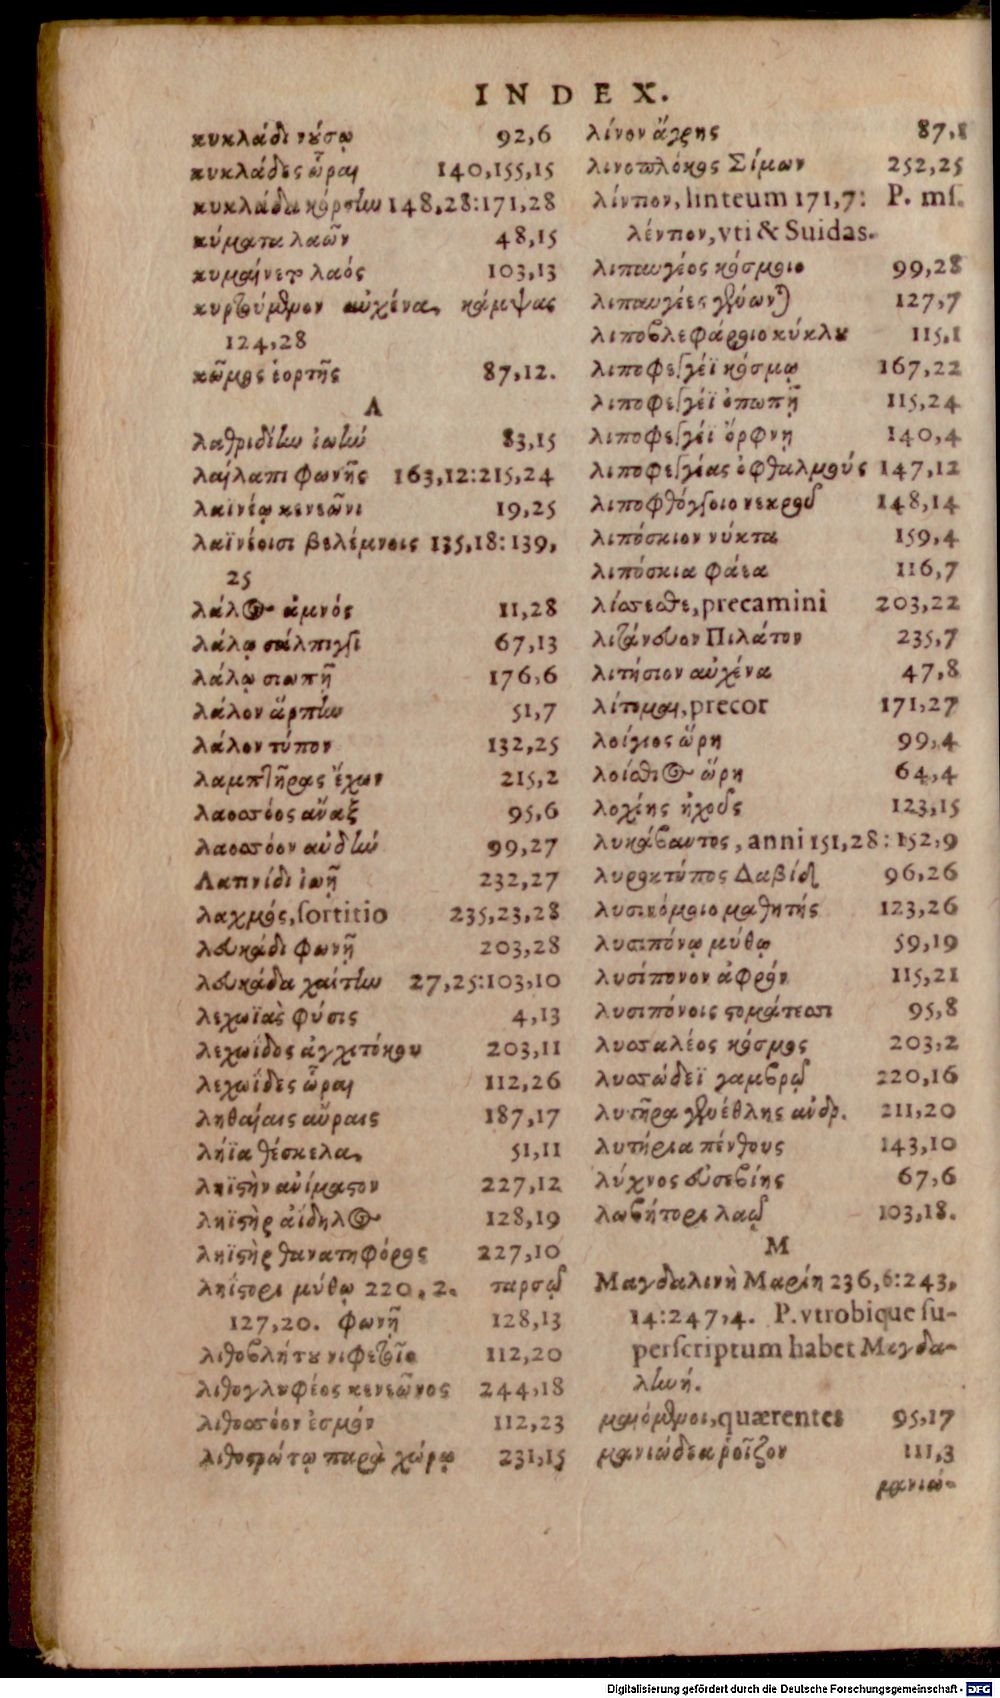 INDEX.
κυκλάδι νύσῳ 92,6
κυκλάδες ὧραι 140,155,15
κυκλάδα κόρσην 148,28:171,28
κύματα λαῶν 48,15
κυμαίνετο λαός 103,13
κυρτούμενον αὐχένα κάμψας
124,28
κῶμος ἑορτῆς 87,12.
Λ
λαθριδίην ἰωήν 83,15
λαίλαπι φωνῆς 163,12:215,24
λαϊνέῳ κενεῶνι 19,25
λαϊνέοισι βελέμνοις 135,18:139,
25
λάλος ἀμνός 11,28
λάλῳ σάλπιγγι 67,13
λάλῳ σιωπῇ 176,6
λάλον ἅρπην 51,7
λάλον τύπον 132,25
λαμπτῆρας ἔχων 215,2
λαοσσόος ἄναξ 95,6
λαοσσόον αὐδήν 99,27
Λατινίδι ἰωῇ 232,27
λαχμός, sortitio 235,23,28
λευκάδι φωνῇ 203,28
λευκάδα χαίτην 27,25:103,10
λεχωϊὰς φύσις 4,13
λεχωΐδος ἀγχιτόκου 203,11
λεχωΐδες ὧραι 112,26
ληθαίαις αὔραις 187,17
λήϊα θέσκελα 51,11
ληϊστὴν ἀνίμαστον 227,12
ληϊστὴρ ἀίδηλος 128,19
ληϊστὴρ θανατηφόρος 227,10
ληΐστορι μύθῳ 220,2. ταρσῷ
127,20. φωνῇ 128,13
λιθοβλήτου νιφετοῖο 112,20
λιθογλυφέος κενεῶνος 244,18
λιθοσσόον ἑσμόν 112,23
λιθοστρώτῳ παρὰ χώρῳ 231,15
λίνον ἄγρης 87,8
λινοπλόκος Σίμων 252,25
λίντιον, linteum 171,7: P. ms.
λέντιον, vti & Suidas.
λιπαυγέος κόσμοιο 99,28
λιπαυγέες ἐξύωνται 127,7
λιποβλεφάροιο κύκλου 115,1
λιποφεγγέϊ κόσμῳ 167,22
λιποφεγγέϊ ὀπωπῇ 115,24
λιποφεγγέϊ ὄρφνῃ 140,4
λιποφεγγέας ὀφθαλμούς 147,12
λιποφθόγγοιο νεκροῦ 148,14
λιπόσκιον νύκτα 159,4
λιπόσκια φάεα 116,7
λίσσεσθε, precamini 203,22
λιτάνευον Πιλάτον 235,7
λιτήσιον αὐχένα 47,8
λίτομαι, precor 171,27
λοίγιος ὥρη 99,4
λοίσθιος ὥρη 64,4
λοχίης ἠχοῦς 123,15
λυκάβαντος, anni 151,28:152,9
λυροκτύπος Δαβίδ 96,26
λυσικόμοιο μαθητής 123,26
λυσιπόνῳ μύθῳ 59,19
λυσίπονον ἀφρόν 115,21
λυσιπόνοις στομάτεσσι 95,8
λυσσαλέος κόσμος 203,2
λυσσώδεϊ γαμβρῷ 220,16
λυτῆρα γενέθλης ἀνδρ. 211,20
λυτήρια πένθους 143,10
λύχνος εὐσεβίης 67,6
λωβήτορι λαῷ 103,18.
Μ
Μαγδαλινὴ Μαρίη 236,6:243,
14:247,4. P. vtrobique su-
perscriptum habet Μαγδα-
ληνή.
μαιόμενοι, quærentes 95,17
μανιώδεα ῥοῖζον 111,3
μανιώ-
Digitalisierung gefördert durch die Deutsche Forschungsgemeinschaft - DFG